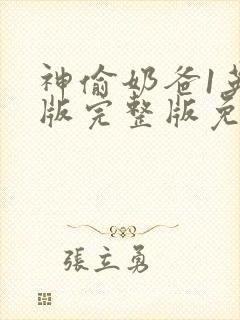 神偷奶爸1英
版完整版免
張立勇